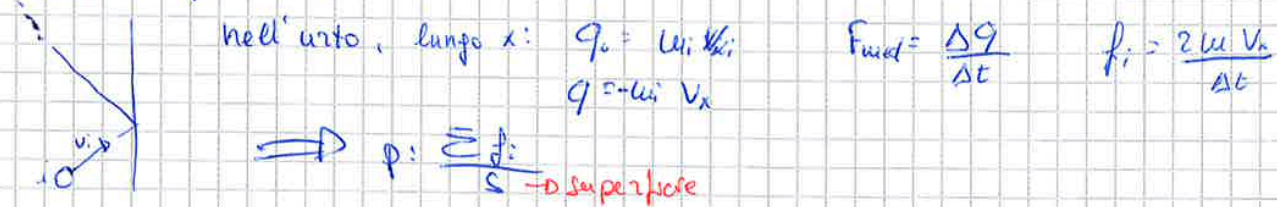 nell'urto, lungo x: q₀ = mᵢ vₓᵢ Fmed = Δq/Δt fᵢ = 2m Vₓ/Δt
q = -mᵢ Vₓ
vᵢ
⇒ p: Σfᵢ/S → superficie